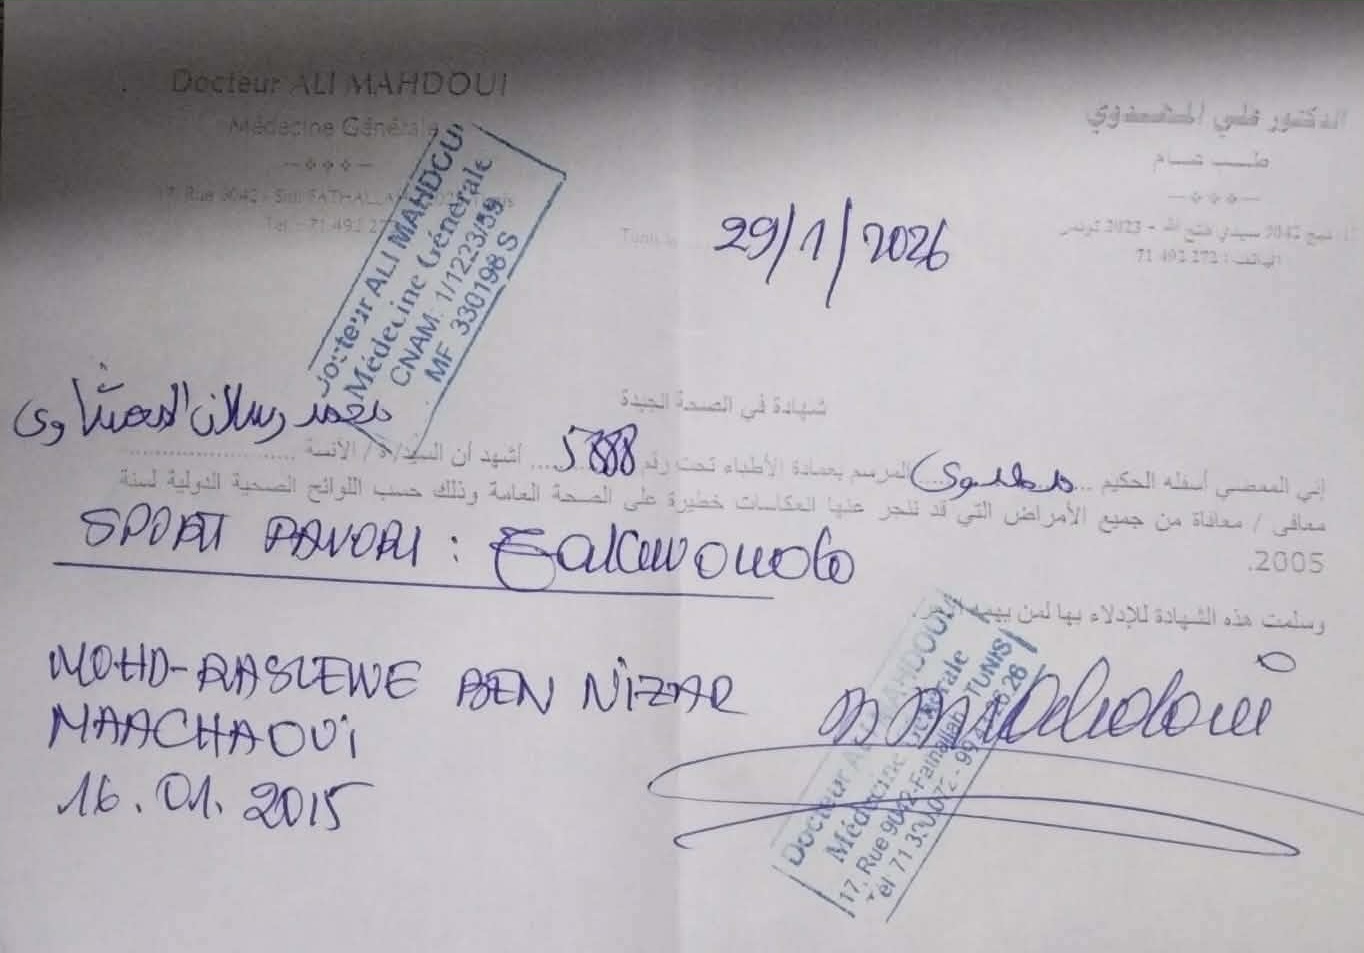 Docteur ALI MAHDOUI
Médecine Générale
17, Rue 9042 - Sidi FATHALLAH
Tél. : 71 492 272
الدكتور علي المهدوي
طب عام
نهج 9042 سيدي فتح الله - 2023 تونس
الهاتف : 71 492 272
Docteur ALI MAHDOUI
Médecine Générale
CNAM. 1/1223/59
MF 330198 S
Tunis le
29/1/2026
شهادة في الصحة الجيدة
إني الممضي أسفله الحكيم ... مهدوي المرسم بعمادة الأطباء تحت رقم ... أشهد أن السيد/ة / الآنسة محمد رسلان المعشاوي
معافى / معافاة من جميع الأمراض التي قد تنجر عنها انعكاسات خطيرة على الصحة العامة وذلك حسب اللوائح الصحية الدولية لسنة
2005.
SPORT : Taekwondo
وسلمت هذه الشهادة للإدلاء بها لمن يهمه
MOHD-RASLENE BEN NIZAR
MAACHAOUI
16.01.2015
Docteur ALI MAHDOUI
Médecine Générale
17, Rue 9042-Fathallah TUNIS